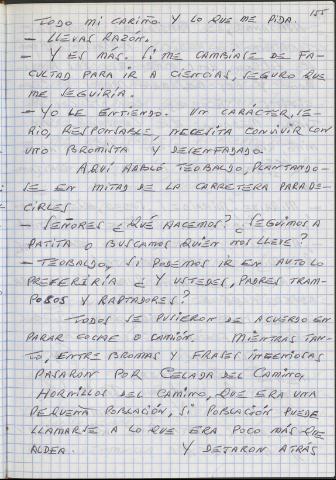 155
TODO MI CARIÑO. Y LO QUE ME PIDA.
- LLEVAS RAZÓN.
- Y ES MÁS. SI ME CAMBIASE DE FA-
CULTAD PARA IR A CIENCIAS, SEGURO QUE
ME SEGUIRÍA.
- YO LE ENTIENDO. UN CARÁCTER, SE-
RIO, RESPONSABLE, NECESITA CONVIVIR CON
UNO BROMISTA Y DESENFADADO.
AQUÍ HABLÓ TEOBALDO, PLANTANDO-
SE EN MITAD DE LA CARRETERA PARA DE-
CIRLES
- SEÑORES ¿QUÉ HACEMOS? ¿SEGUIMOS A
PATITA O BUSCAMOS QUIEN NOS LLEVE?
- TEOBALDO, SI PODEMOS IR EN AUTO LO
PREFERIRÍA ¿Y USTEDES, PADRES TRAM-
POSOS Y RAPTADORES?
TODOS SE PUSIERON DE ACUERDO EN
PARAR COCHE O CAMIÓN. MIENTRAS TAN-
TO, ENTRE BROMAS Y FRASES INGENIOSAS
PASARON POR CELADA DEL CAMINO,
HORNILLOS DEL CAMINO, QUE ERA UNA
PEQUEÑA POBLACIÓN, SI POBLACIÓN PUEDE
LLAMARSE A LO QUE ERA POCO MÁS QUE
ALDEA. Y DEJARON ATRÁS